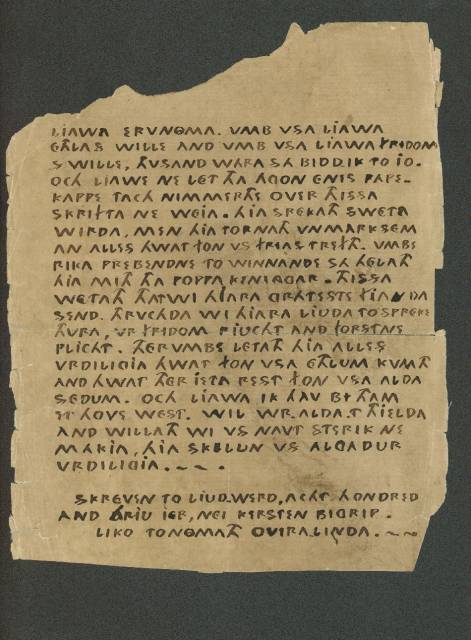 LJAWA ERVNÔMA. VMB VSA LJAWA
ÊTHLAS WILLE AND VMB VSA LJAWA FRIDOM
S WILLE, THUSAND WARA SA BIDD.IK TO JO.
OCH LJAWE NE LET THA AGON ENIS PAPE-
KAPPE TACH NIMMERTHE OVER THISSA
SKRIFTA NE WEJA. HJA SPREKATH SWETA
WIRDA, MEN HJA TORNATH VNMARKSEM
AN ALLES HWAT FON VS FRIAS TREFTH. VMBE
RIKA PREBENDNE TO WINNANDE SA HELATH
HJA MITH THA POPPA KENINGGAR. THISSA
WETATH THATWI HJARA GRATESTE FIANDA
SEND. THRUCHDA WI HJARA LIUDA TO SPREKE
THVRA, VR FRIDOM RIUCHT AND FORSTNE
PLICHT. THERVMBE LETATH HJA ALLES
VRDILIGJA HWAT FON VSA ETHLUM KVMTH
AND HWAT THER JETA REST FON VSA ALDA
SEDUM. OCH LJAWA IK HAV BI THAM
ET HOVE WEST. WIL WR.ALDA.T THJELDA
AND WILLATH WI VS NAVT STERIK NE
MAKJA, HJA SKELUN VS ALGADUR
VRDILIGJA. ~ ~ ~
SKREVEN TO LIUD.WERD, ACHT HONDRED
AND THRIU JER, NEI KERSTEN BIGRIP.
LIKO TONÔMATH OVIRA.LINDA. ~ ~